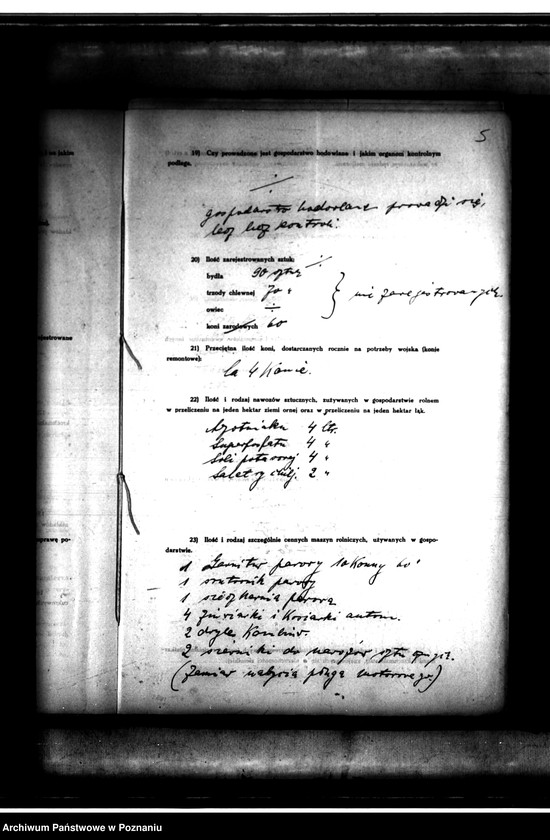 5
19) Czy prowadzone jest gospodarstwo hodowlane i jakim organom kontrolnym
podlega.
gospodarstwo hodowlane prowadzi się,
lecz bez kontroli.
20) Ilość zarejestrowanych sztuk:
bydła 90 sztuk
trzody chlewnej 70 "
nie zarejestrowanych.
owiec ÷
koni zarodowych 60
21) Przeciętna ilość koni, dostarczanych rocznie na potrzeby wojska (konie
remontowe):
4 konie.
22) Ilość i rodzaj nawozów sztucznych, zużywanych w gospodarstwie rolnem
w przeliczeniu na jeden hektar ziemi ornej oraz w przeliczeniu na jeden hektar łąk.
Azotniaku 4 ctr.
Superfosfatu 4 "
Soli potasowej 4 "
Saletry 2 "
23) Ilość i rodzaj szczególnie cennych maszyn rolniczych, używanych w gospo-
darstwie.
1 Garnitur parowy
1 parowy
1 parowa
4 żniwiarki i kosiarki
2 dryle
2 do nawozów
(zamiar nabycia pługa motorowego)
Archiwum Państwowe w Poznaniu